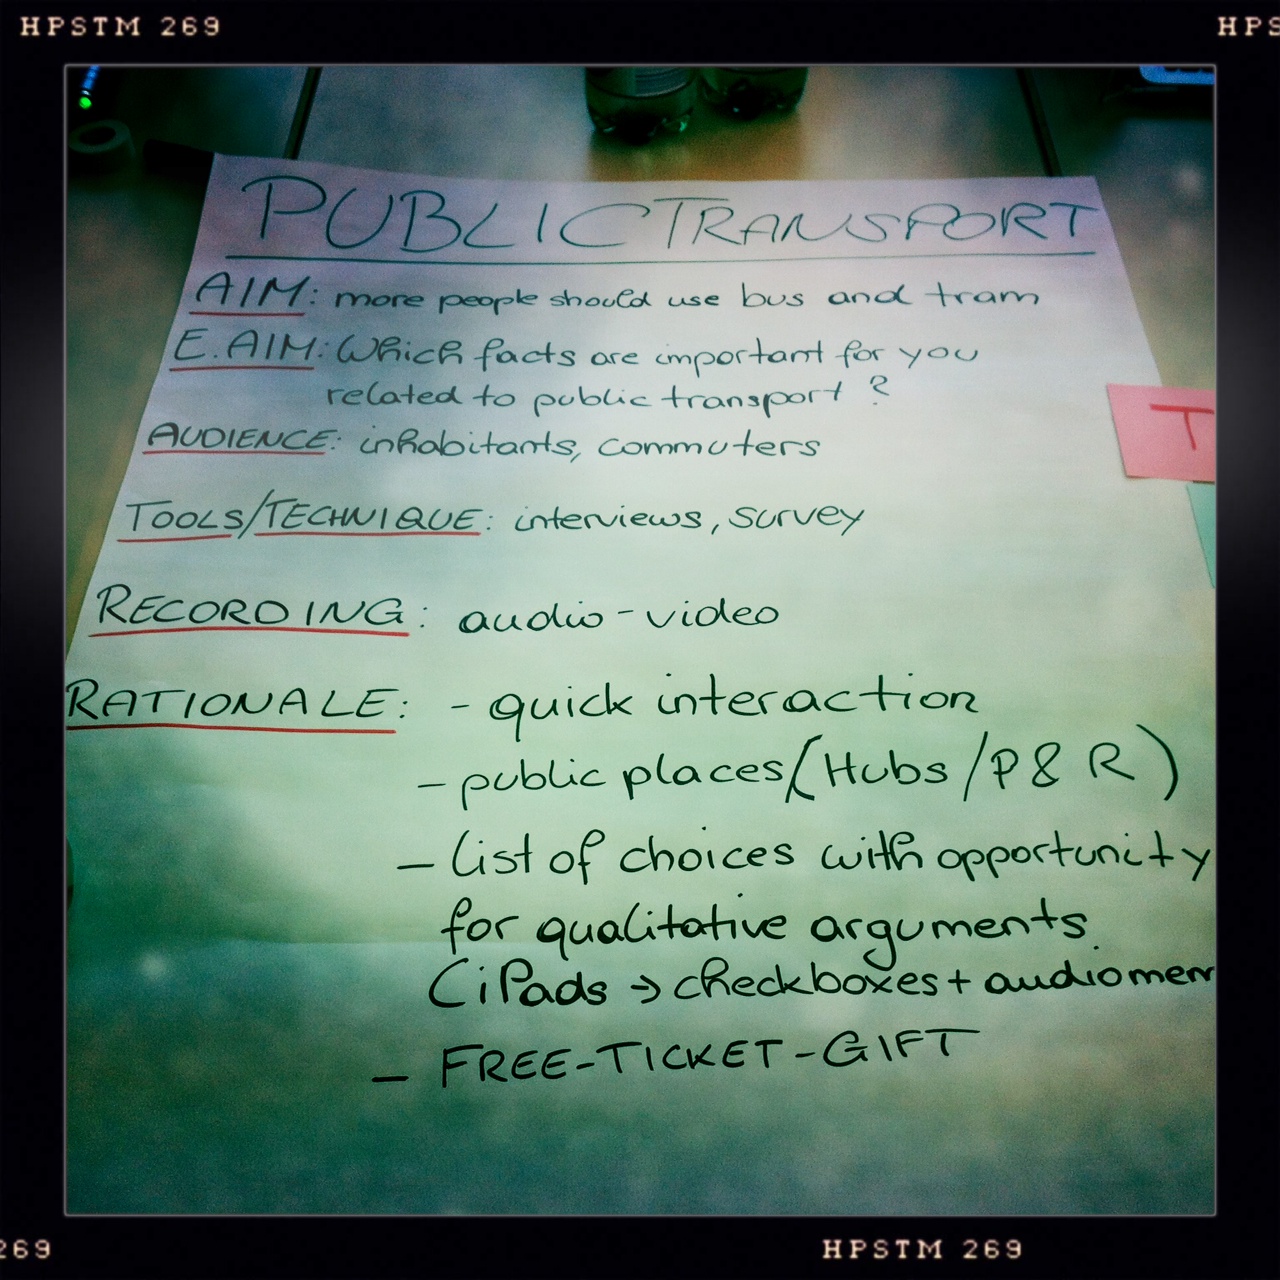 HPSTM 269
HPS
PUBLIC TRANSPORT
AIM: more people should use bus and tram
E. AIM: Which facts are important for you
related to public transport ?
AUDIENCE: inhabitants, commuters
T
TOOLS/TECHNIQUE: interviews, survey
RECORDING: audio-video
RATIONALE: - quick interaction
- public places (Hubs / P & R)
- List of choices with opportunity
for qualitative arguments.
(iPads → checkboxes + audiomem
- FREE-TICKET-GIFT
269
HPSTM 269